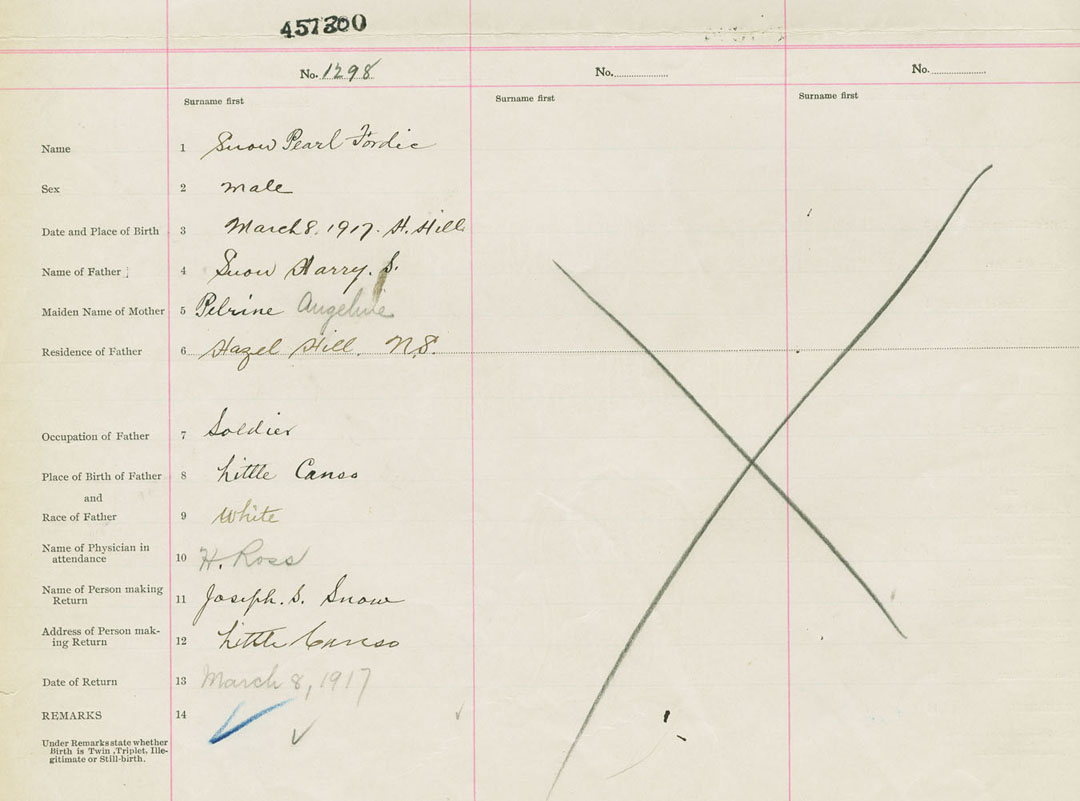 457300
No. 1298 No. No.
Surname first Surname first Surname first
Name 1 Snow Pearl Fordie
Sex 2 male
Date and Place of Birth 3 March 8. 1917. H. Hill
Name of Father 4 Snow Harry. S.
Maiden Name of Mother 5 Pelrine Angeline
Residence of Father 6 Hazel Hill. N.S.
Occupation of Father 7 Soldier
Place of Birth of Father 8 Little Canso
and
Race of Father 9 White
Name of Physician in
attendance 10 H. Ross
Name of Person making
Return 11 Joseph. S. Snow
Address of Person mak-
ing Return 12 Little Canso
Date of Return 13 March 8, 1917
REMARKS 14
Under Remarks state whether
Birth is Twin, Triplet, Ille-
gitimate or Still-birth.